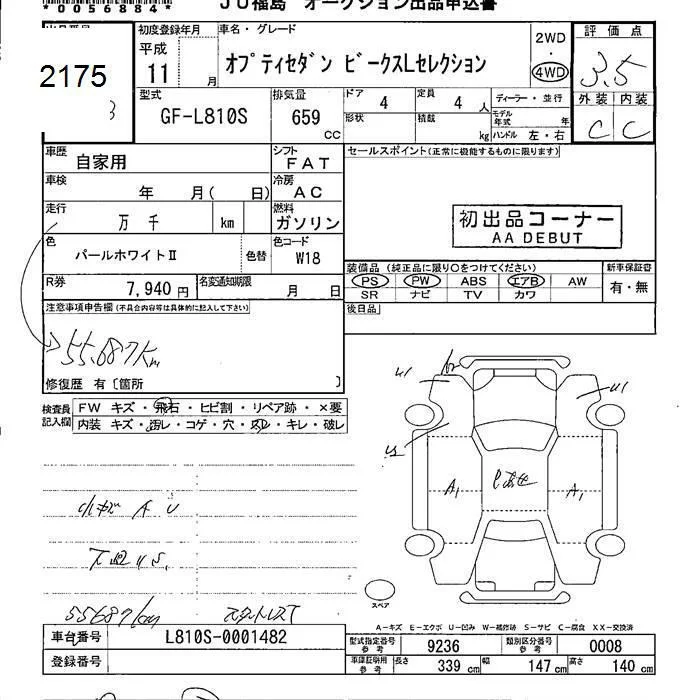 * 0 0 5 6 8 8 4 *
JU福島 オークション出品申込書
2175
3
初度登録年月
平成
11 月
車名・グレード
オプティセダン ビークスLセレクション
2WD
・
4WD
評価点
3.5
外装 内装
C C
型式
GF-L810S
排気量
659
CC
ドア 4
定員 4 人
形状
積載 kg
ディーラー・並行
モデル年式 年
ハンドル 左・右
車歴
自家用
シフト
FAT
車検
年 月( 日)
冷房
AC
走行
万 千 km
燃料
ガソリン
色
パールホワイトⅡ
色替
色コード
W18
R券
7,940 円
名変通知期限
月 日
セールスポイント(正常に機能するものに限ります)
初出品コーナー
AA DEBUT
装備品 (純正品に限り○をつけてください)
PS PW ABS エアB AW
SR ナビ TV カワ
新車保証書
有・無
後日品
注意事項申告欄(不具合内容等は具体的に記入して下さい)
55.687Km
修復歴 有〔箇所 〕
検査員
記入欄
FW キズ・飛石・ヒビ割・リペア跡・×要
内装 キズ・汚レ・コゲ・穴・スレ・キレ・破レ
A1
A1
U1
スペア
A-キズ E-エクボ U-凹み W-補修跡 S-サビ C-腐食 XX-交換済
55687km
スタットレスT
車台番号 L810S-0001482
登録番号
型式指定番号
参考
9236
類別区分番号
参考
0008
車庫証明用
参考
長さ 339 cm 幅 147 cm 高さ 140 cm